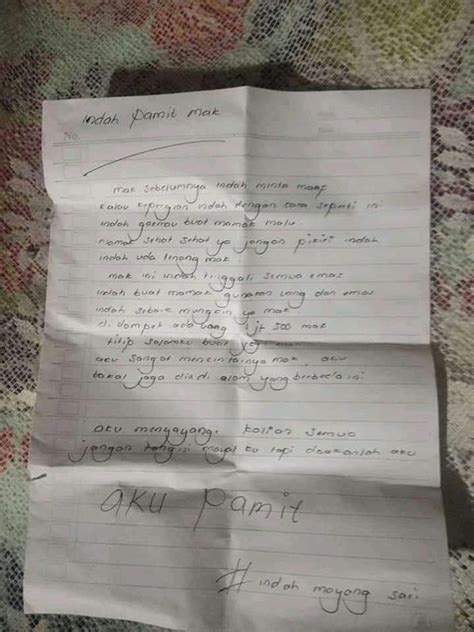 Indah Pamit mak
No.
mak sebelumnya indah minta maaf
kalau kepergian indah dengan cara seperti ini
indah gakmau buat mamak malu
mamak sehat sehat ya jangan pikiri indah
indah uda tenang mak
mak ini indah tinggali semua emas
indah buat mamak gunakan uang dan emas
indah sebaik mungkin ya mak
di dompet ada uang 1 jt 500 mak
titip salamku buat
aku sangat mencintainya mak aku
bakal jaga dia di alam yang berbeda ini
aku menyayangi kalian semua
jangan tangisi mayat ku tapi doakanlah aku
aku Pamit
# indah mayang sari